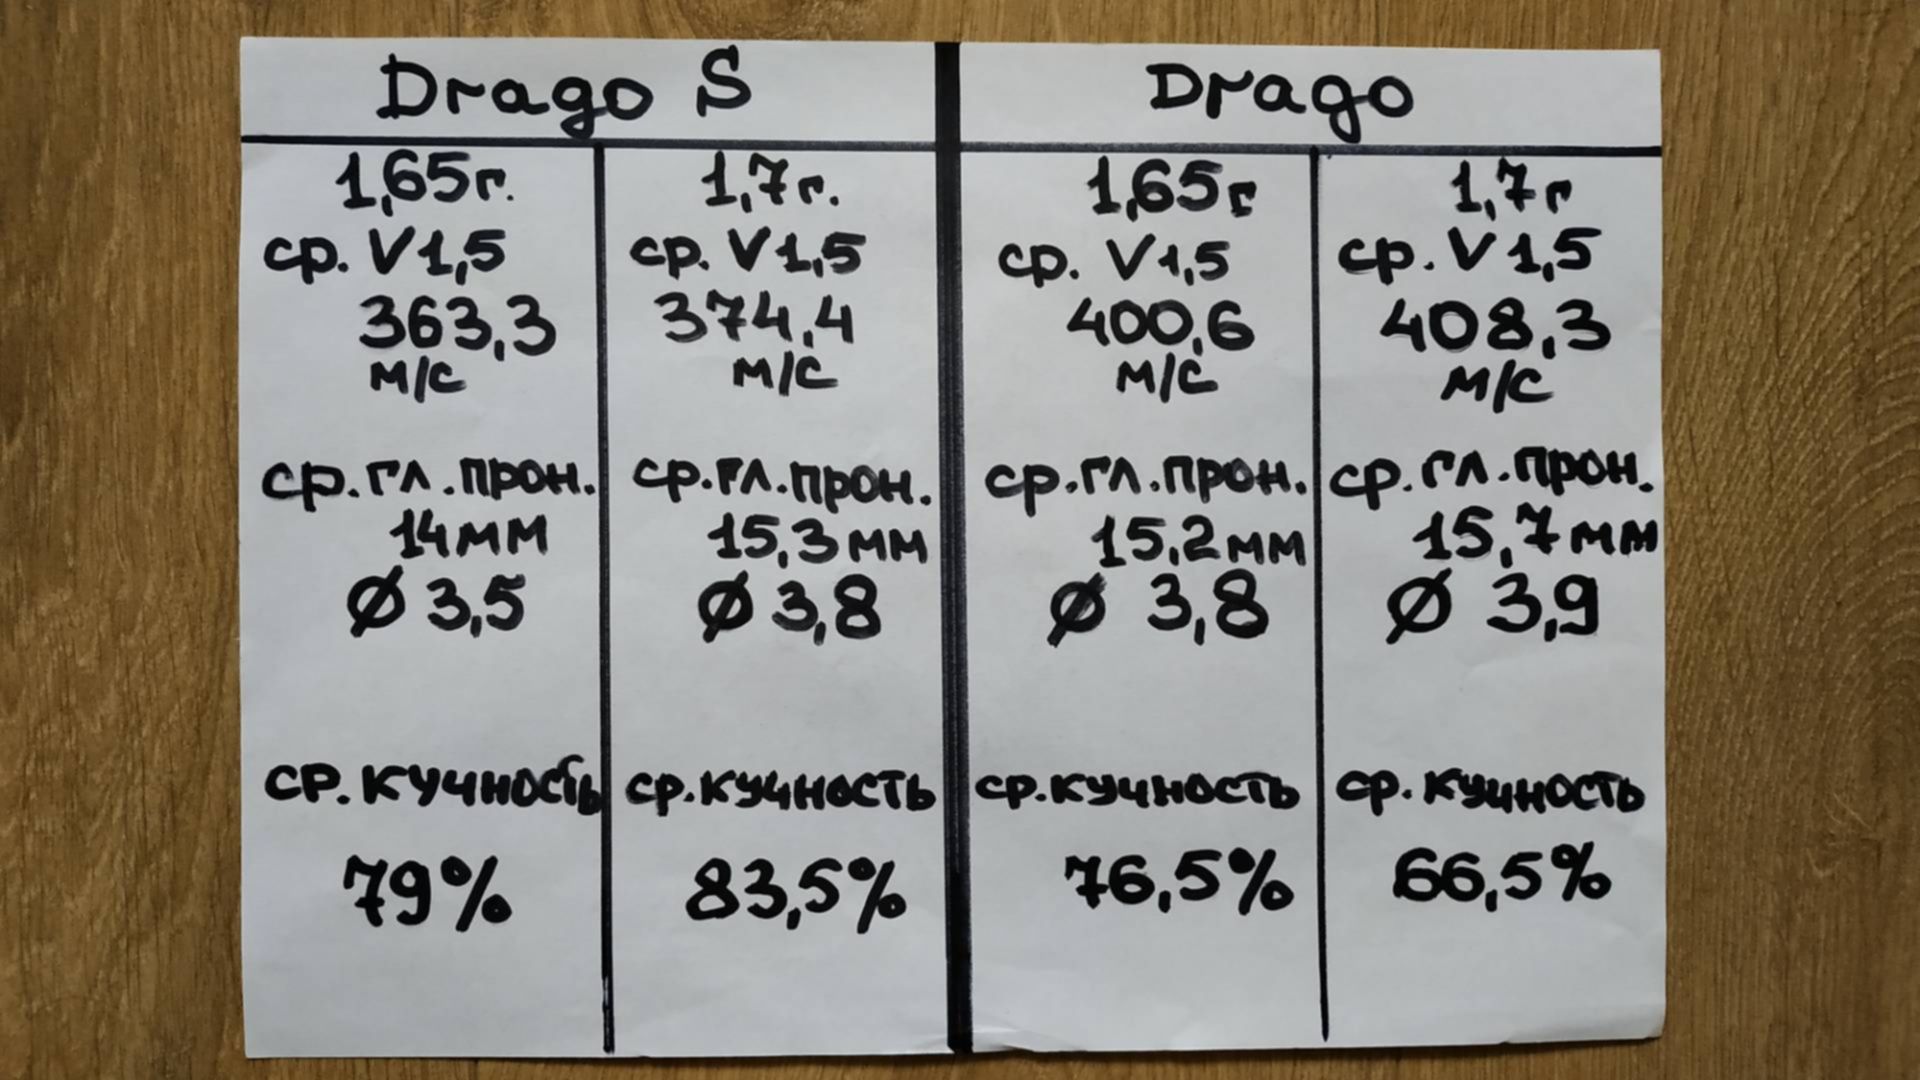 Drago S
1,65г.
ср. V1,5
363,3
м/с
ср.гл.прон.
14мм
Ø 3,5
ср.кучность
79%
1,7г.
ср. V1,5
374,4
м/с
ср.гл.прон.
15,3мм
Ø 3,8
ср.кучность
83,5%
Drago
1,65г
ср. V1,5
400,6
м/с
ср.гл.прон.
15,2мм
Ø 3,8
ср.кучность
76,5%
1,7г
ср. V1,5
408,3
м/с
ср.гл.прон.
15,7мм
Ø 3,9
ср.кучность
66,5%